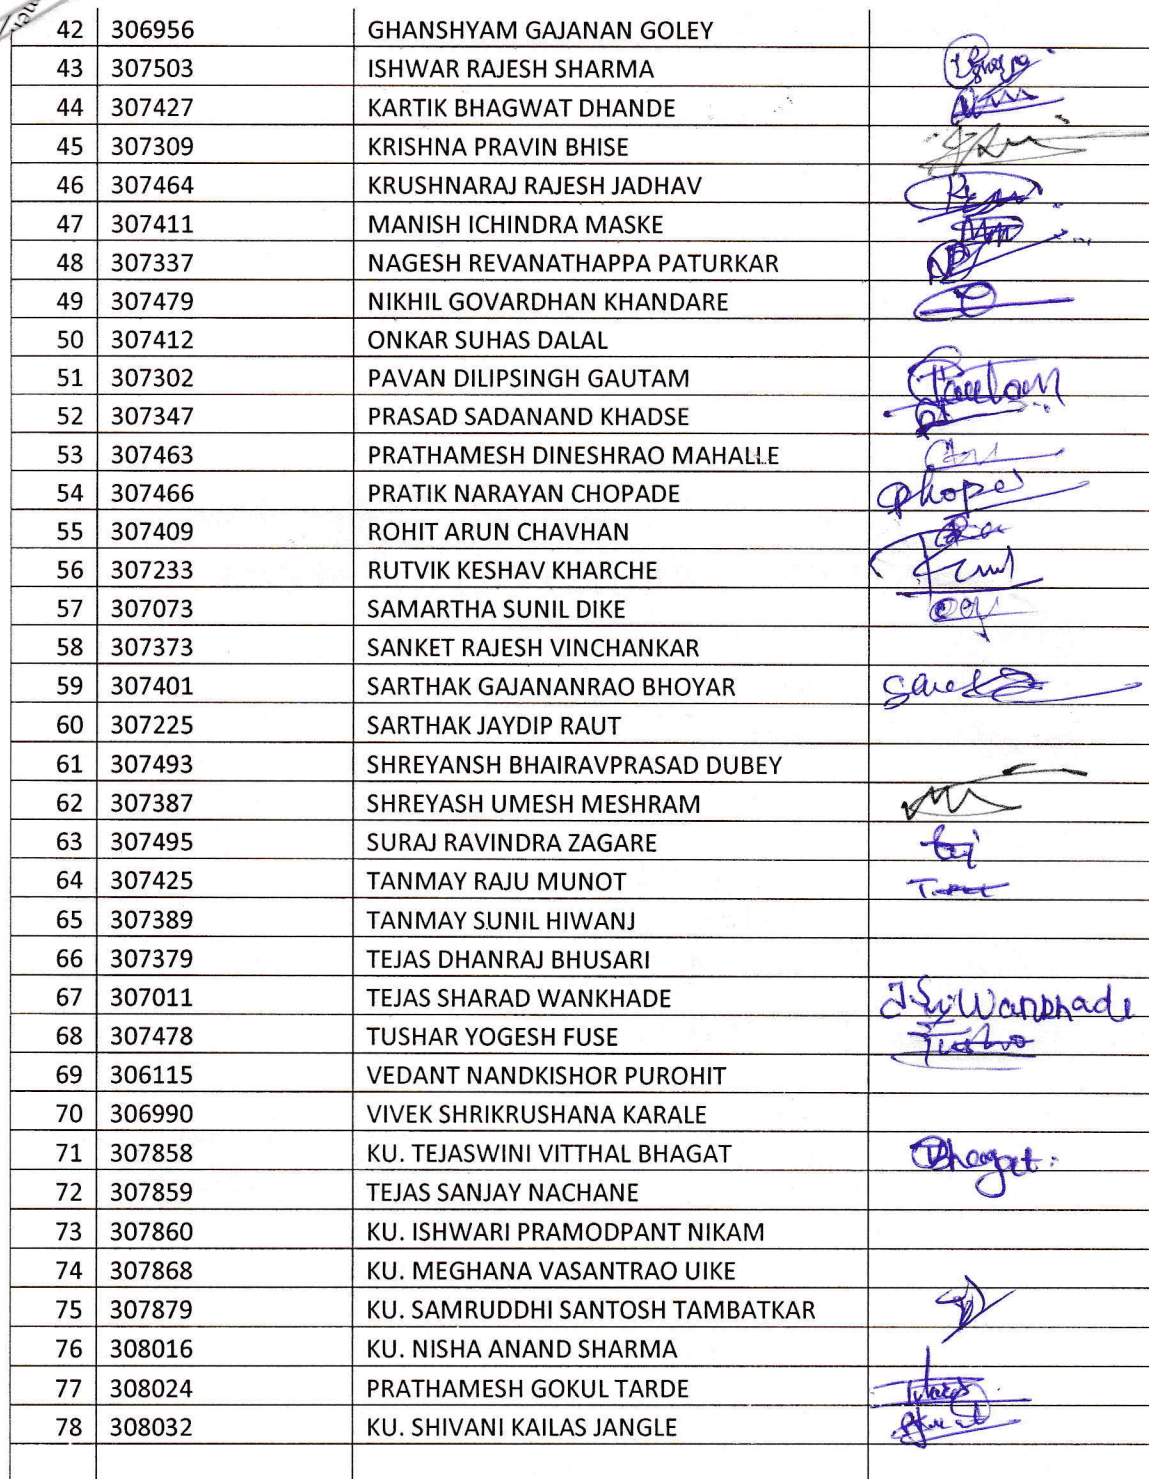 42 306956 GHANSHYAM GAJANAN GOLEY
43 307503 ISHWAR RAJESH SHARMA
44 307427 KARTIK BHAGWAT DHANDE
45 307309 KRISHNA PRAVIN BHISE
46 307464 KRUSHNARAJ RAJESH JADHAV
47 307411 MANISH ICHINDRA MASKE
48 307337 NAGESH REVANATHAPPA PATURKAR
49 307479 NIKHIL GOVARDHAN KHANDARE
50 307412 ONKAR SUHAS DALAL
51 307302 PAVAN DILIPSINGH GAUTAM
52 307347 PRASAD SADANAND KHADSE
53 307463 PRATHAMESH DINESHRAO MAHALLE
54 307466 PRATIK NARAYAN CHOPADE
55 307409 ROHIT ARUN CHAVHAN
56 307233 RUTVIK KESHAV KHARCHE
57 307073 SAMARTHA SUNIL DIKE
58 307373 SANKET RAJESH VINCHANKAR
59 307401 SARTHAK GAJANANRAO BHOYAR
60 307225 SARTHAK JAYDIP RAUT
61 307493 SHREYANSH BHAIRAVPRASAD DUBEY
62 307387 SHREYASH UMESH MESHRAM
63 307495 SURAJ RAVINDRA ZAGARE
64 307425 TANMAY RAJU MUNOT
65 307389 TANMAY SUNIL HIWANJ
66 307379 TEJAS DHANRAJ BHUSARI
67 307011 TEJAS SHARAD WANKHADE
68 307478 TUSHAR YOGESH FUSE
69 306115 VEDANT NANDKISHOR PUROHIT
70 306990 VIVEK SHRIKRUSHANA KARALE
71 307858 KU. TEJASWINI VITTHAL BHAGAT Bhagat
72 307859 TEJAS SANJAY NACHANE
73 307860 KU. ISHWARI PRAMODPANT NIKAM
74 307868 KU. MEGHANA VASANTRAO UIKE
75 307879 KU. SAMRUDDHI SANTOSH TAMBATKAR
76 308016 KU. NISHA ANAND SHARMA
77 308024 PRATHAMESH GOKUL TARDE
78 308032 KU. SHIVANI KAILAS JANGLE